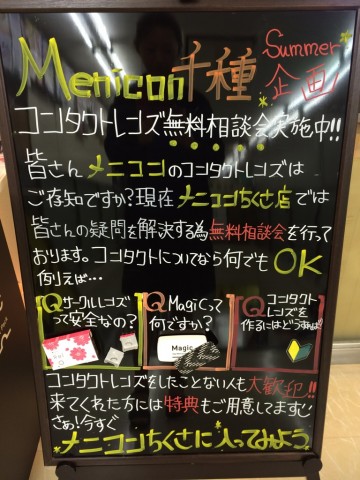 Menicon千種 Summer企画
コンタクトレンズ無料相談会実施中!!
皆さんメニコンのコンタクトレンズは
ご存知ですか?現在メニコンちくさ店では
皆さんの疑問を解決する為無料相談会を行って
おります。コンタクトについてなら何でもOK
例えば…
Qサークルレンズ
って安全なの?
QMagicって
何ですか?
Magic
Qコンタクト
レンズを
作るにはどうすれば?
コンタクトレンズをしたことない人も大歓迎!!
来てくれた方には特典もご用意してます
さぁ!今すぐ
メニコンちくさに入ってみよう